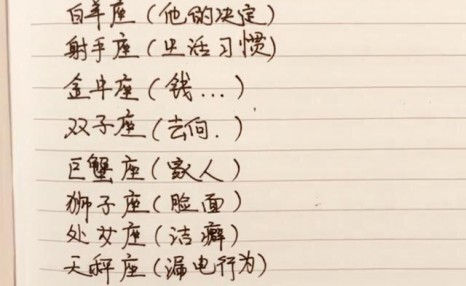 白羊座(他的决定)
射手座(生活习惯)
金牛座(钱...)
双子座(去向.)
巨蟹座(家人)
狮子座(脸面)
处女座(洁癖)
天秤座(漏电行为)